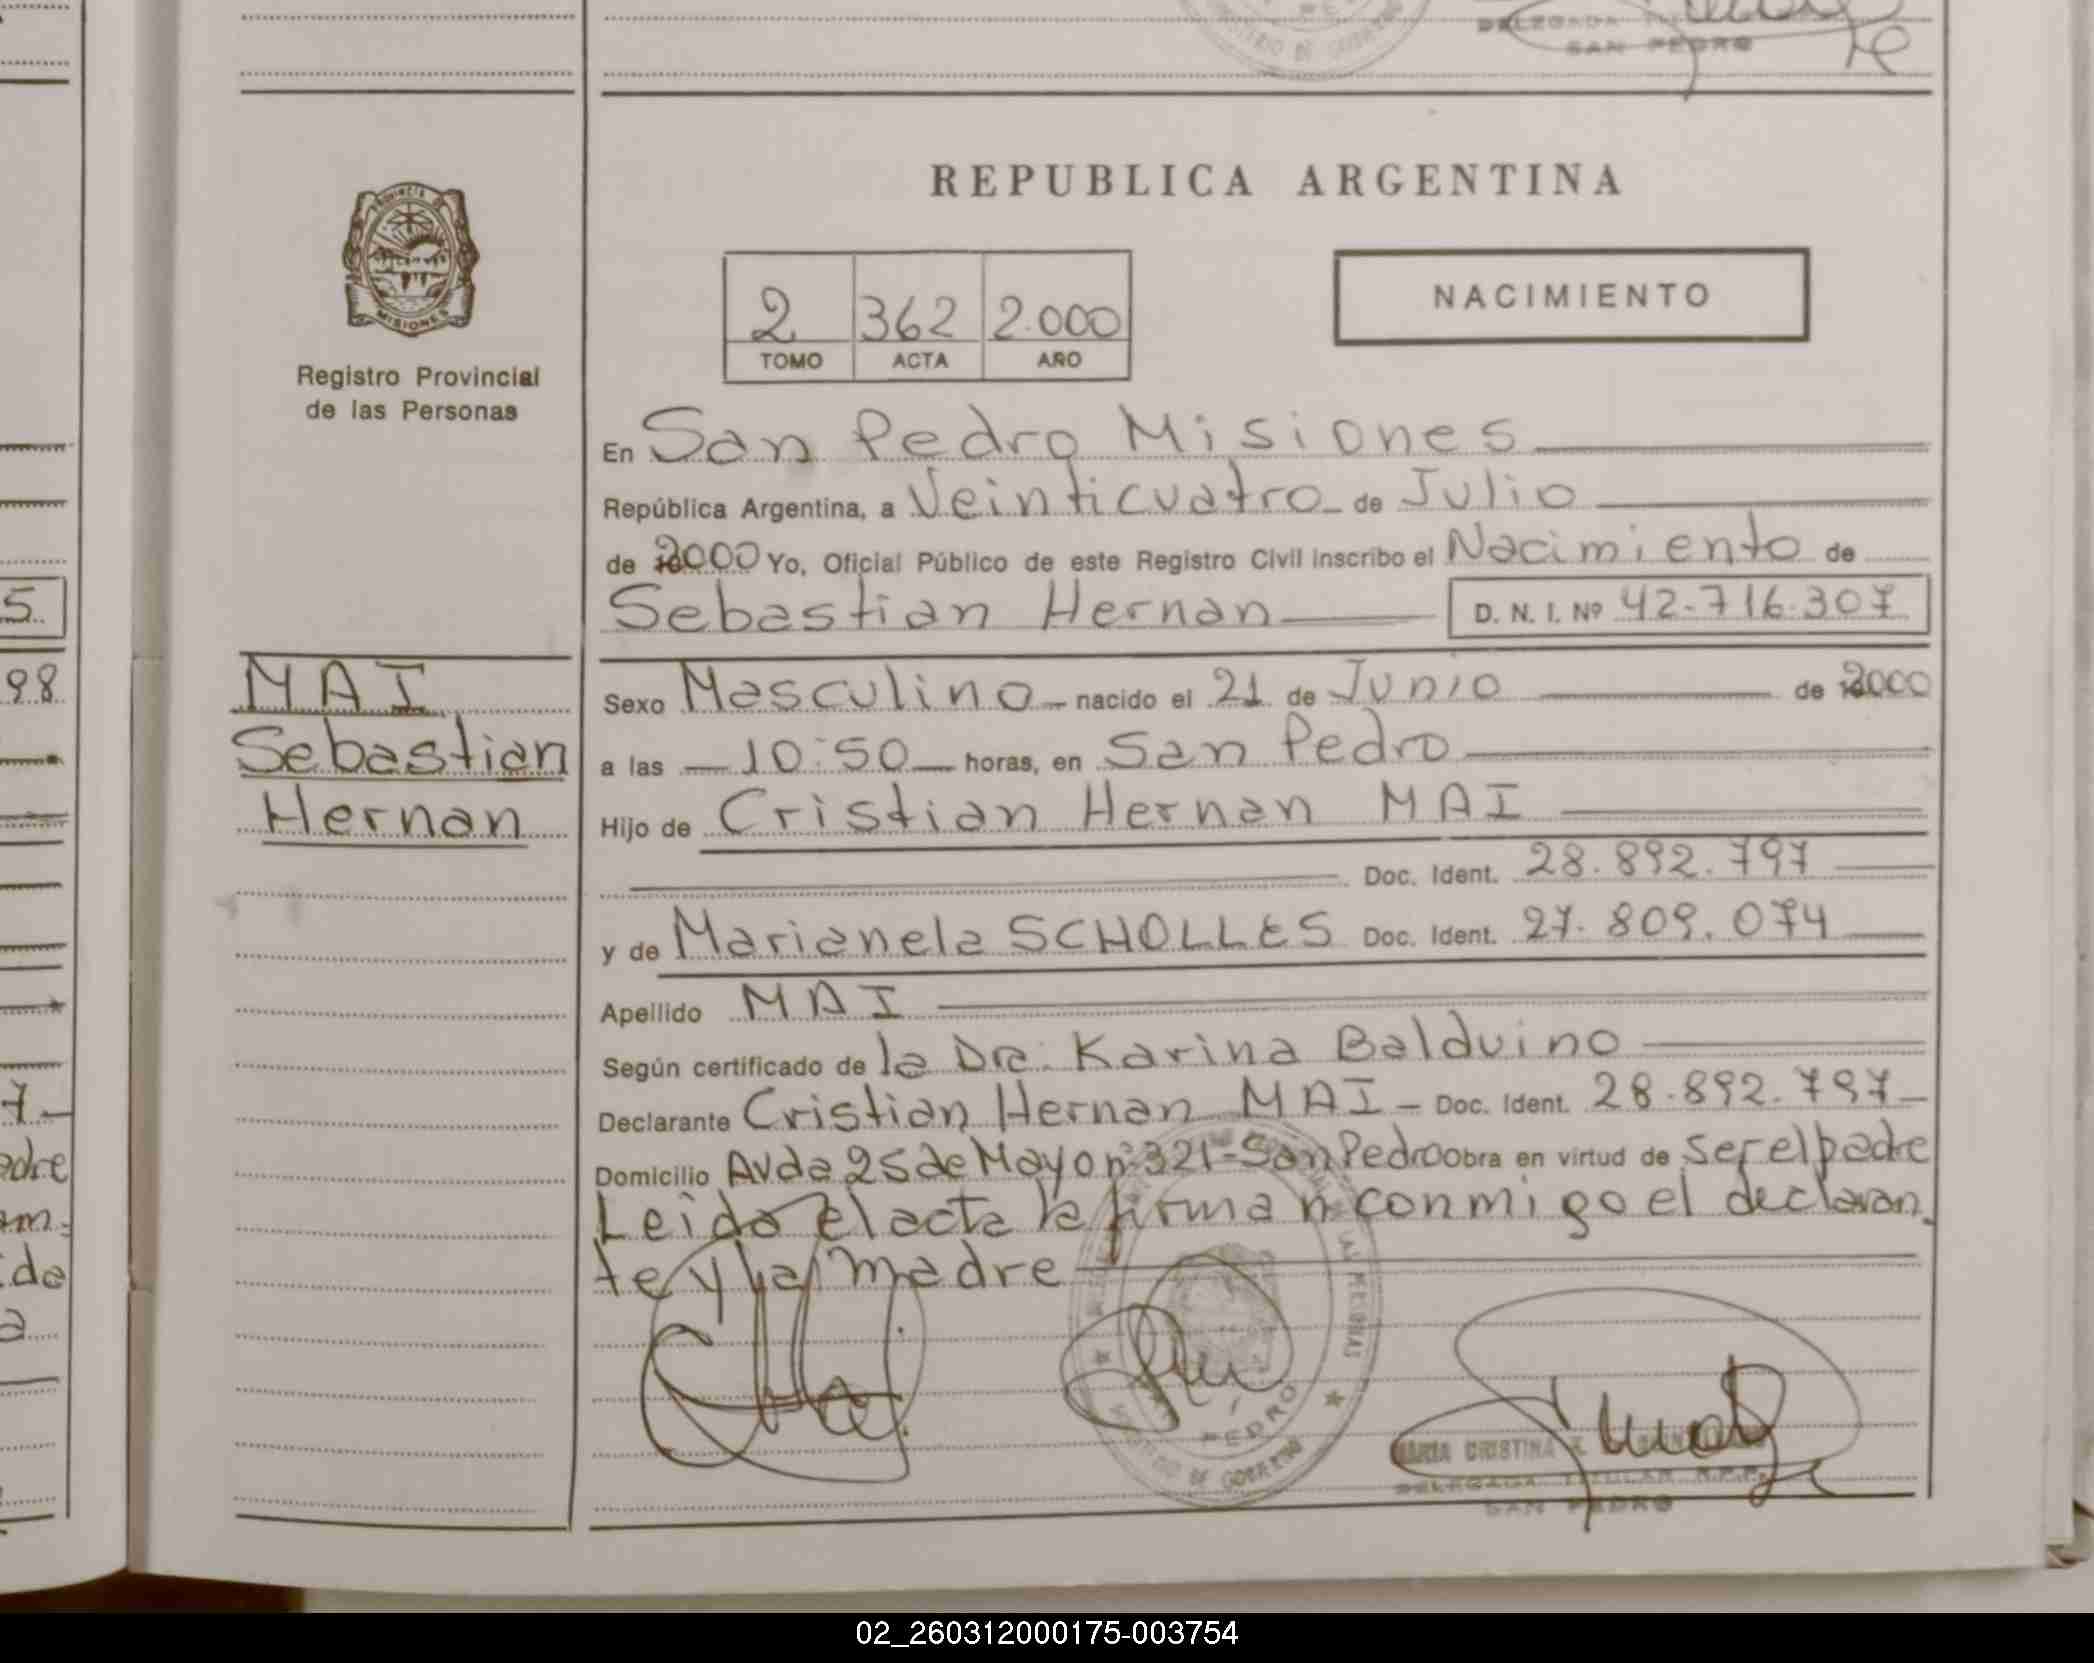 DELEGADA TITULAR
SAN PEDRO
MINISTERIO DE GOBIERNO
PROVINCIA DE
MISIONES
Registro Provincial
de las Personas
REPUBLICA ARGENTINA
2 362 2.000
TOMO ACTA AÑO
NACIMIENTO
En San Pedro Misiones
República Argentina, a Veinticuatro de Julio
de 2000 Yo, Oficial Público de este Registro Civil inscribo el Nacimiento de
Sebastian Hernan D. N. I. Nº 42.716.307
MAI
Sebastian
Hernan
Sexo Masculino nacido el 21 de Junio de 2000
a las 10:50 horas, en San Pedro
Hijo de Cristian Hernan MAI
Doc. Ident. 28.892.797
y de Marianela SCHOLLES Doc. Ident. 27.809.074
Apellido MAI
Según certificado de la Dra. Karina Balduino
Declarante Cristian Hernan MAI - Doc. Ident. 28.892.797
Domicilio Avda 25 de Mayo nº 321 - San Pedro obra en virtud de ser el padre
Leida el acta la firman conmigo el declaran
te y la madre
LAS PERSONAS
PEDRO
DE GOBIERNO
MARIA CRISTINA
DELEGADA TITULAR R.P.P.
SAN PEDRO
5
98
7
adre
am
ida
a
02_260312000175-003754